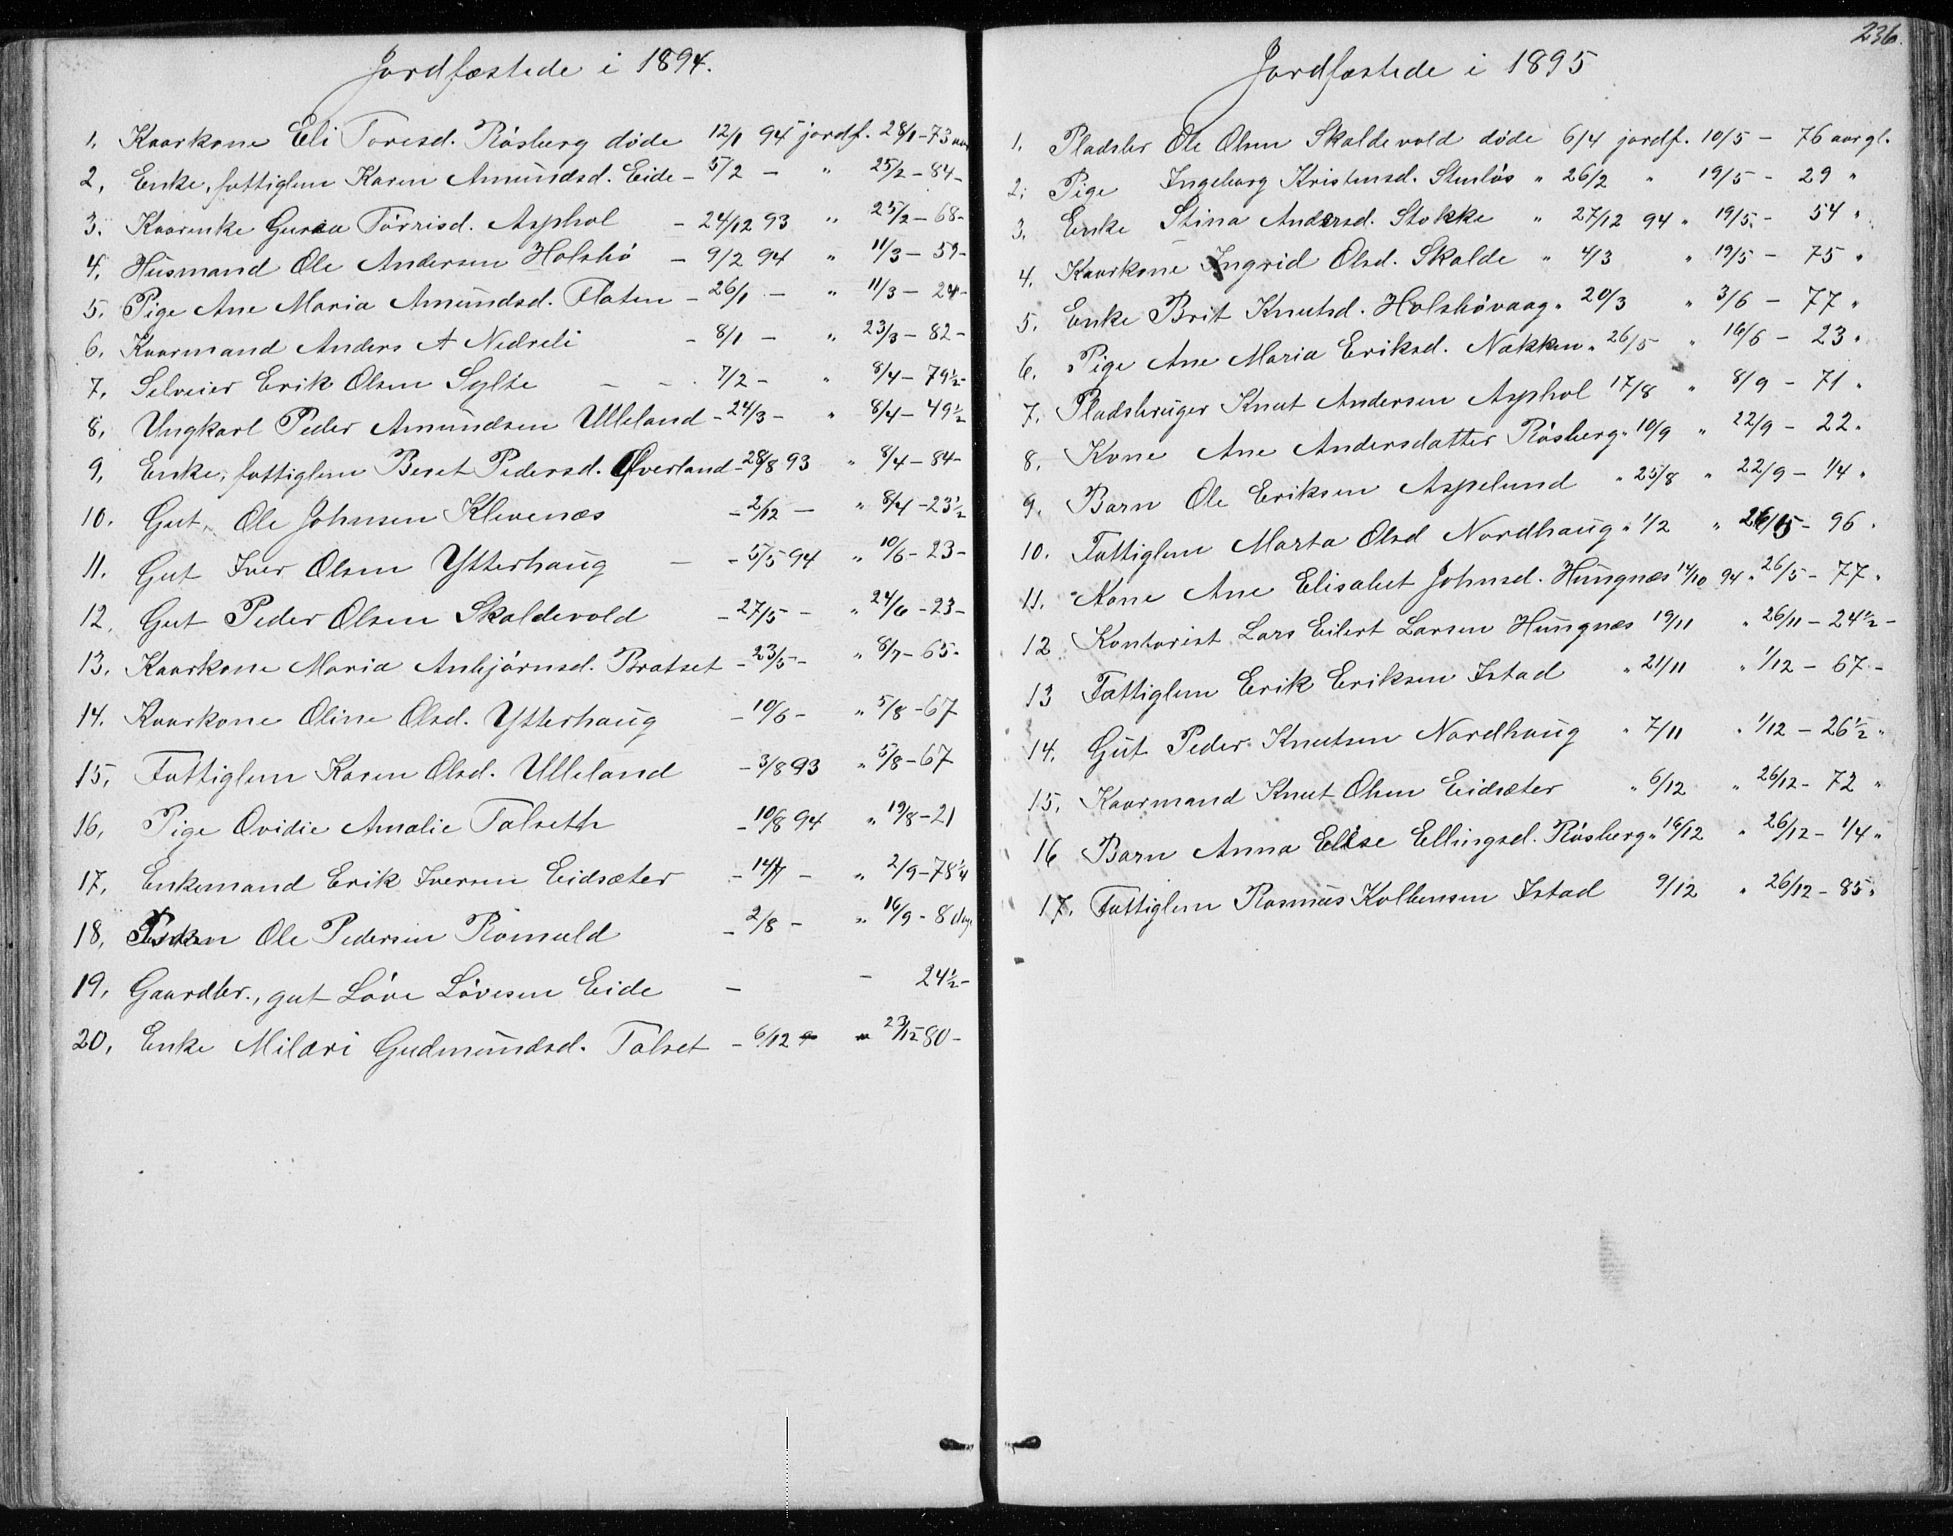 Jordfæstede i 1894.
1. Kaarkone Eli Toresd. Røsberg døde 12/1 94 jordf. 28/1 - 73 aar
2. Enke, fattiglem Karen Amundsd. Eide - 5/2 - " 25/2 - 84 -
3. Kaarenke Guraa Tørrisd. Asphol - 24/12 93 " 25/2 - 68 -
4. Husmand Ole Andersen Holsbø - 9/2 94 " 11/3 - 59 -
5. Pige Ane Maria Amundsd. Flaten - 26/1 - " 11/3 - 24 -
6. Kaarmand Anders A Nedreli - 8/1 - " 23/3 - 82 -
7. Selveier Erik Olsen Sylte - - 7/2 - " 8/4 - 79½ -
8. Ungkarl Peder Amundsen Ulleland - 24/3 - " 8/4 - 49½
9. Enke, fattiglem Beret Pedersd. Øverland - 28/8 93 " 8/4 - 84 -
10. Gut, Ole Johnsen Klevenæs - 2/12 - " 8/4 - 23½
11. Gut Iver Olsen Ytterhaug - - 5/5 94 " 10/6 - 23 -
12. Gut Peder Olsen Skaldevold - 27/5 - " 24/6 - 23 -
13. Kaarkone Maria Anbjørnsd. Bratset - 23/5 - " 8/7 - 65 -
14. Kaarkone Oline Olsd. Ytterhaug - 10/6 - " 5/8 - 67
15. Fattiglem Karen Olsd. Ulleland - 3/8 93 " 5/8 - 67
16. Pige Ovidie Amalie Talseth - 10/8 94 " 19/8 - 21
17. Enkemand Erik Iversen Eidsæter - 14/7 - " 2/9 - 78¼
18. Ole Pedersen Romuld - 2/8 - " 16/9 - 8 dag.
19. Gaardbr., gut Løve Løvesen Eide - - 24½ -
20. Enke Mildri Gudmundsd. Talset - 6/12 " 23/12 80 -
236.
Jordfæstede i 1895
1. Pladsbr Ole Olsen Skaldevold døde 6/4 jordf. 10/5 - 76 aar gl.
2. Pige Ingeborg Kristensd. Stenløs " 26/2 " 19/5 - 29 "
3. Enke Stina Andersd. Stokke " 27/12 94 " 19/5 - 54 "
4. Kaarkone Ingrid Olsd. Skalde " 4/3 " 19/5 - 75 "
5. Enke Brit Knutsd. Holsbøvaag " 20/3 " 3/6 - 77 "
6. Pige Ane Maria Eriksd. Nakken " 26/5 " 16/6 - 23 "
7. Pladsbruger Knut Andersen Asphol 17/8 " 8/9 - 71 "
8. Kone Ane Andersdatter Røsberg " 10/9 " 22/9 - 22 "
9. Barn Ole Eriksen Aspelund " 25/8 " 22/9 - ¼ "
10. Fattiglem Marta Olsd Nordhaug " 1/2 " 26/5 - 96 "
11. Kone Ane Elisabet Johnsd. Hungnæs 14/10 94 " 26/5 - 77 "
12 Kontorist Lars Eilert Larsen Hungnæs 19/11 " 26/11 - 24½ -
13 Fattiglem Erik Eriksen Istad " 21/11 " 1/12 - 67 -
14. Gut Peder Knutsen Nordhaug " 7/11 " 1/12 - 26½ "
15. Kaarmand Knut Olsen Eidsæter " 6/12 " 26/12 - 72 "
16 Barn Anna Elise Ellingsd. Røsberg " 16/12 " 26/12 - ¼ "
17. Fattiglem Rasmus Kolbensen Istad 9/12 " 26/12 - 85 "